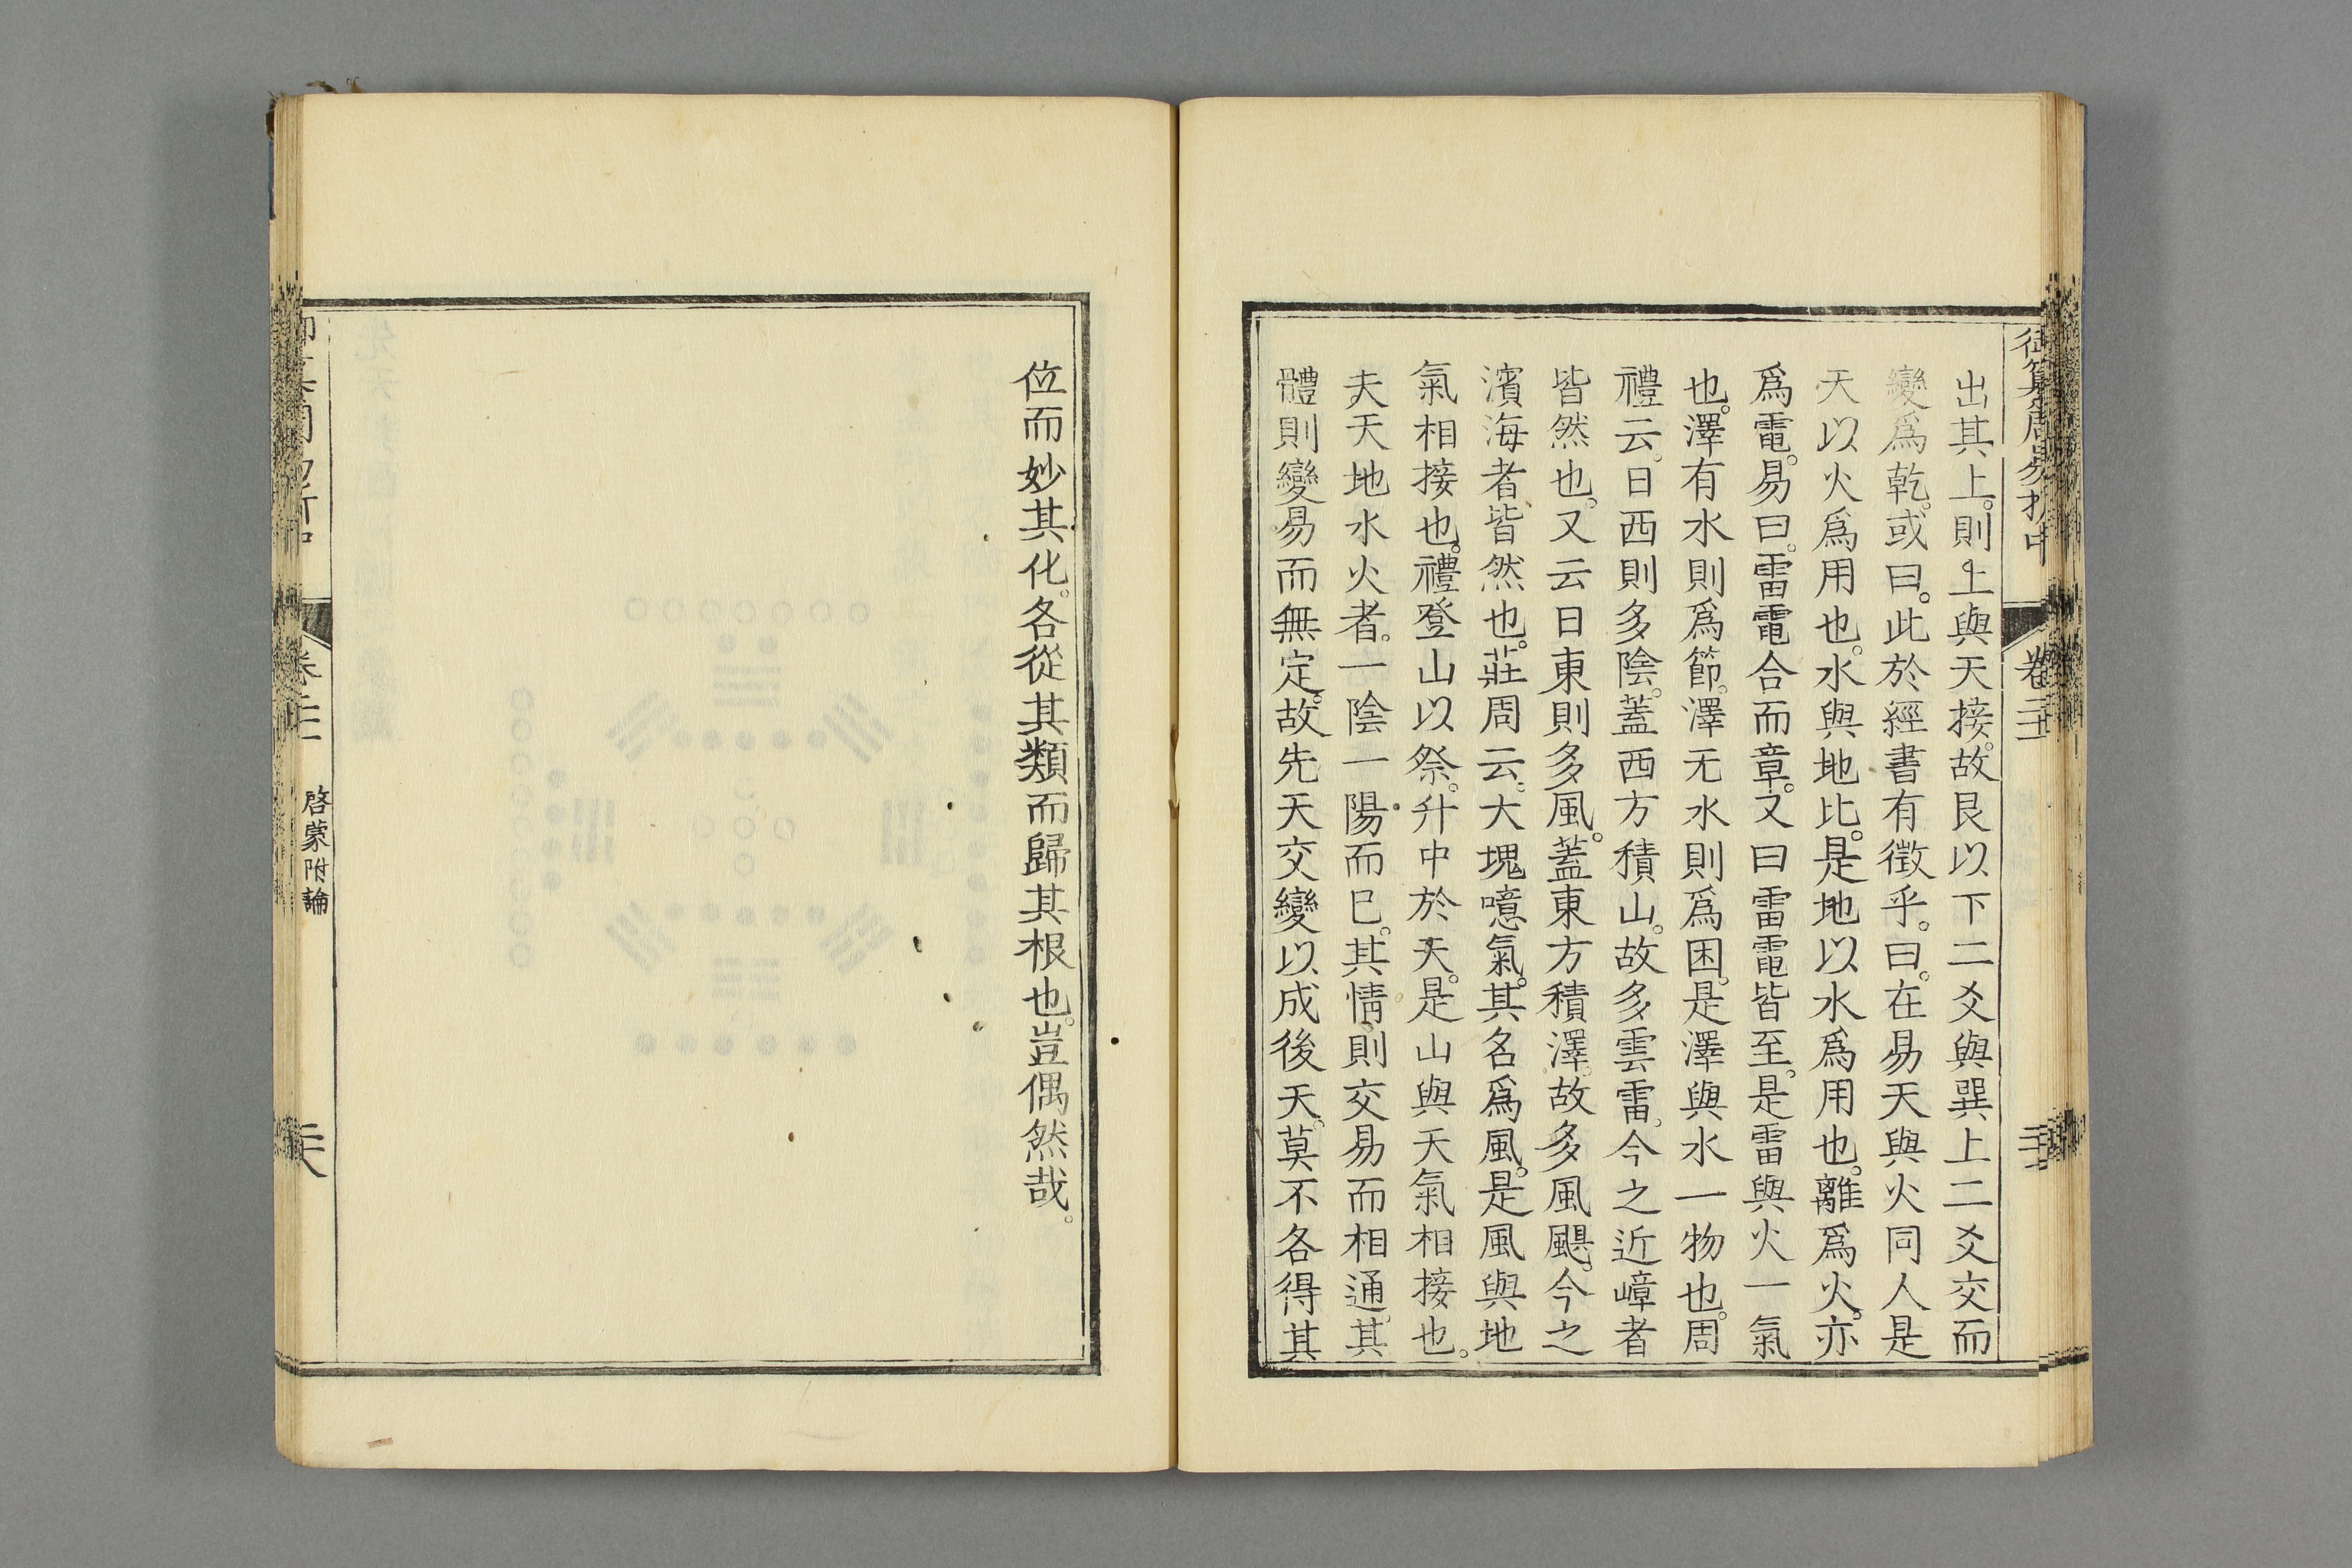 御纂周易折中
卷二十一
出其上。則上與天接。故艮以下二爻與巽上二爻交而
變爲乾。或曰。此於經書有徵乎。曰。在易天與火同人是
天以火爲用也。水與地比。是地以水爲用也。離爲火。亦
爲電。易曰。雷電合而章。又曰雷電皆至。是雷與火一氣
也。澤有水則爲節。澤无水則爲困。是澤與水一物也。周
禮云。日西則多陰。蓋西方積山。故多雲雷。今之近嶂者
皆然也。又云日東則多風。蓋東方積澤。故多風颶。今之
濱海者皆然也。莊周云。大塊噫氣。其名爲風。是風與地
氣相接也。禮登山以祭。升中於天。是山與天氣相接也。
夫天地水火者。一陰一陽而已。其情則交易而相通。其
體則變易而無定。故先天交變以成後天。莫不各得其
位而妙其化。各從其類而歸其根也。豈偶然哉。
啓蒙附論